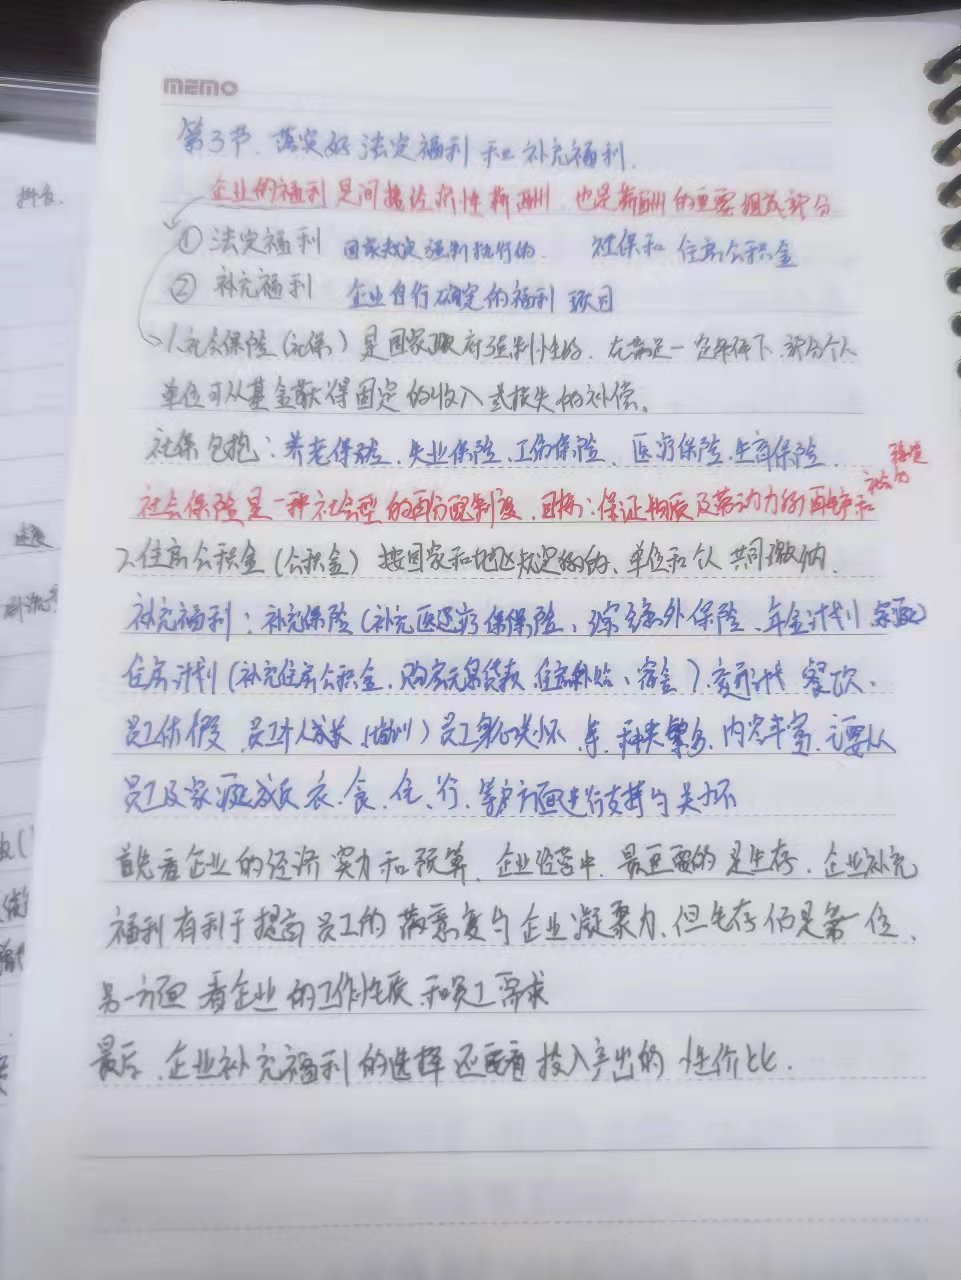 memo
第3节. 落实好 法定福利 和 补充福利.
企业的福利 是间接经济性薪酬. 也是薪酬的重要组成部分
① 法定福利 国家规定强制执行的. 社保和 住房公积金
② 补充福利 企业自行确定的福利 项目
1.社会保险(社保) 是国家政府强制性的. 在满足一定条件下.部分个人
单位可从基金获得固定的收入 或损失的补偿。
社保包括: 养老保险、失业保险、工伤保险、医疗保险、生育保险.
稳定
社会的
社会保险是一种社会型的再分配制度. 目标: 保证物质及劳动力的再生产和
2.住房公积金 (公积金) 按国家和地区规定 的、单位和个人 共同缴纳.
补充福利: 补充保险(补充医疗 保险、 意外保险、年金计划
住房计划(补充住房公积金、购房 贷款 住房补贴、宿舍). 交通计 餐饮.
员工休假 员工个人成长 (培训) 员工 关怀 等. 种类繁多, 内容丰富. 主要从
员工及家庭成员 衣.食.住、行、等 方面进行支持与关怀
首先看企业的经济 实力和预算. 企业经营中. 最重要的 是生存. 企业补充
福利有利于提高 员工的 满意度与 企业凝聚力.但生存仍是第一位.
另一方面 看企业 的工作性质 和员工需求
最后. 企业补充福利的选择 还要看 投入产出的 性价比.
抖音
速度